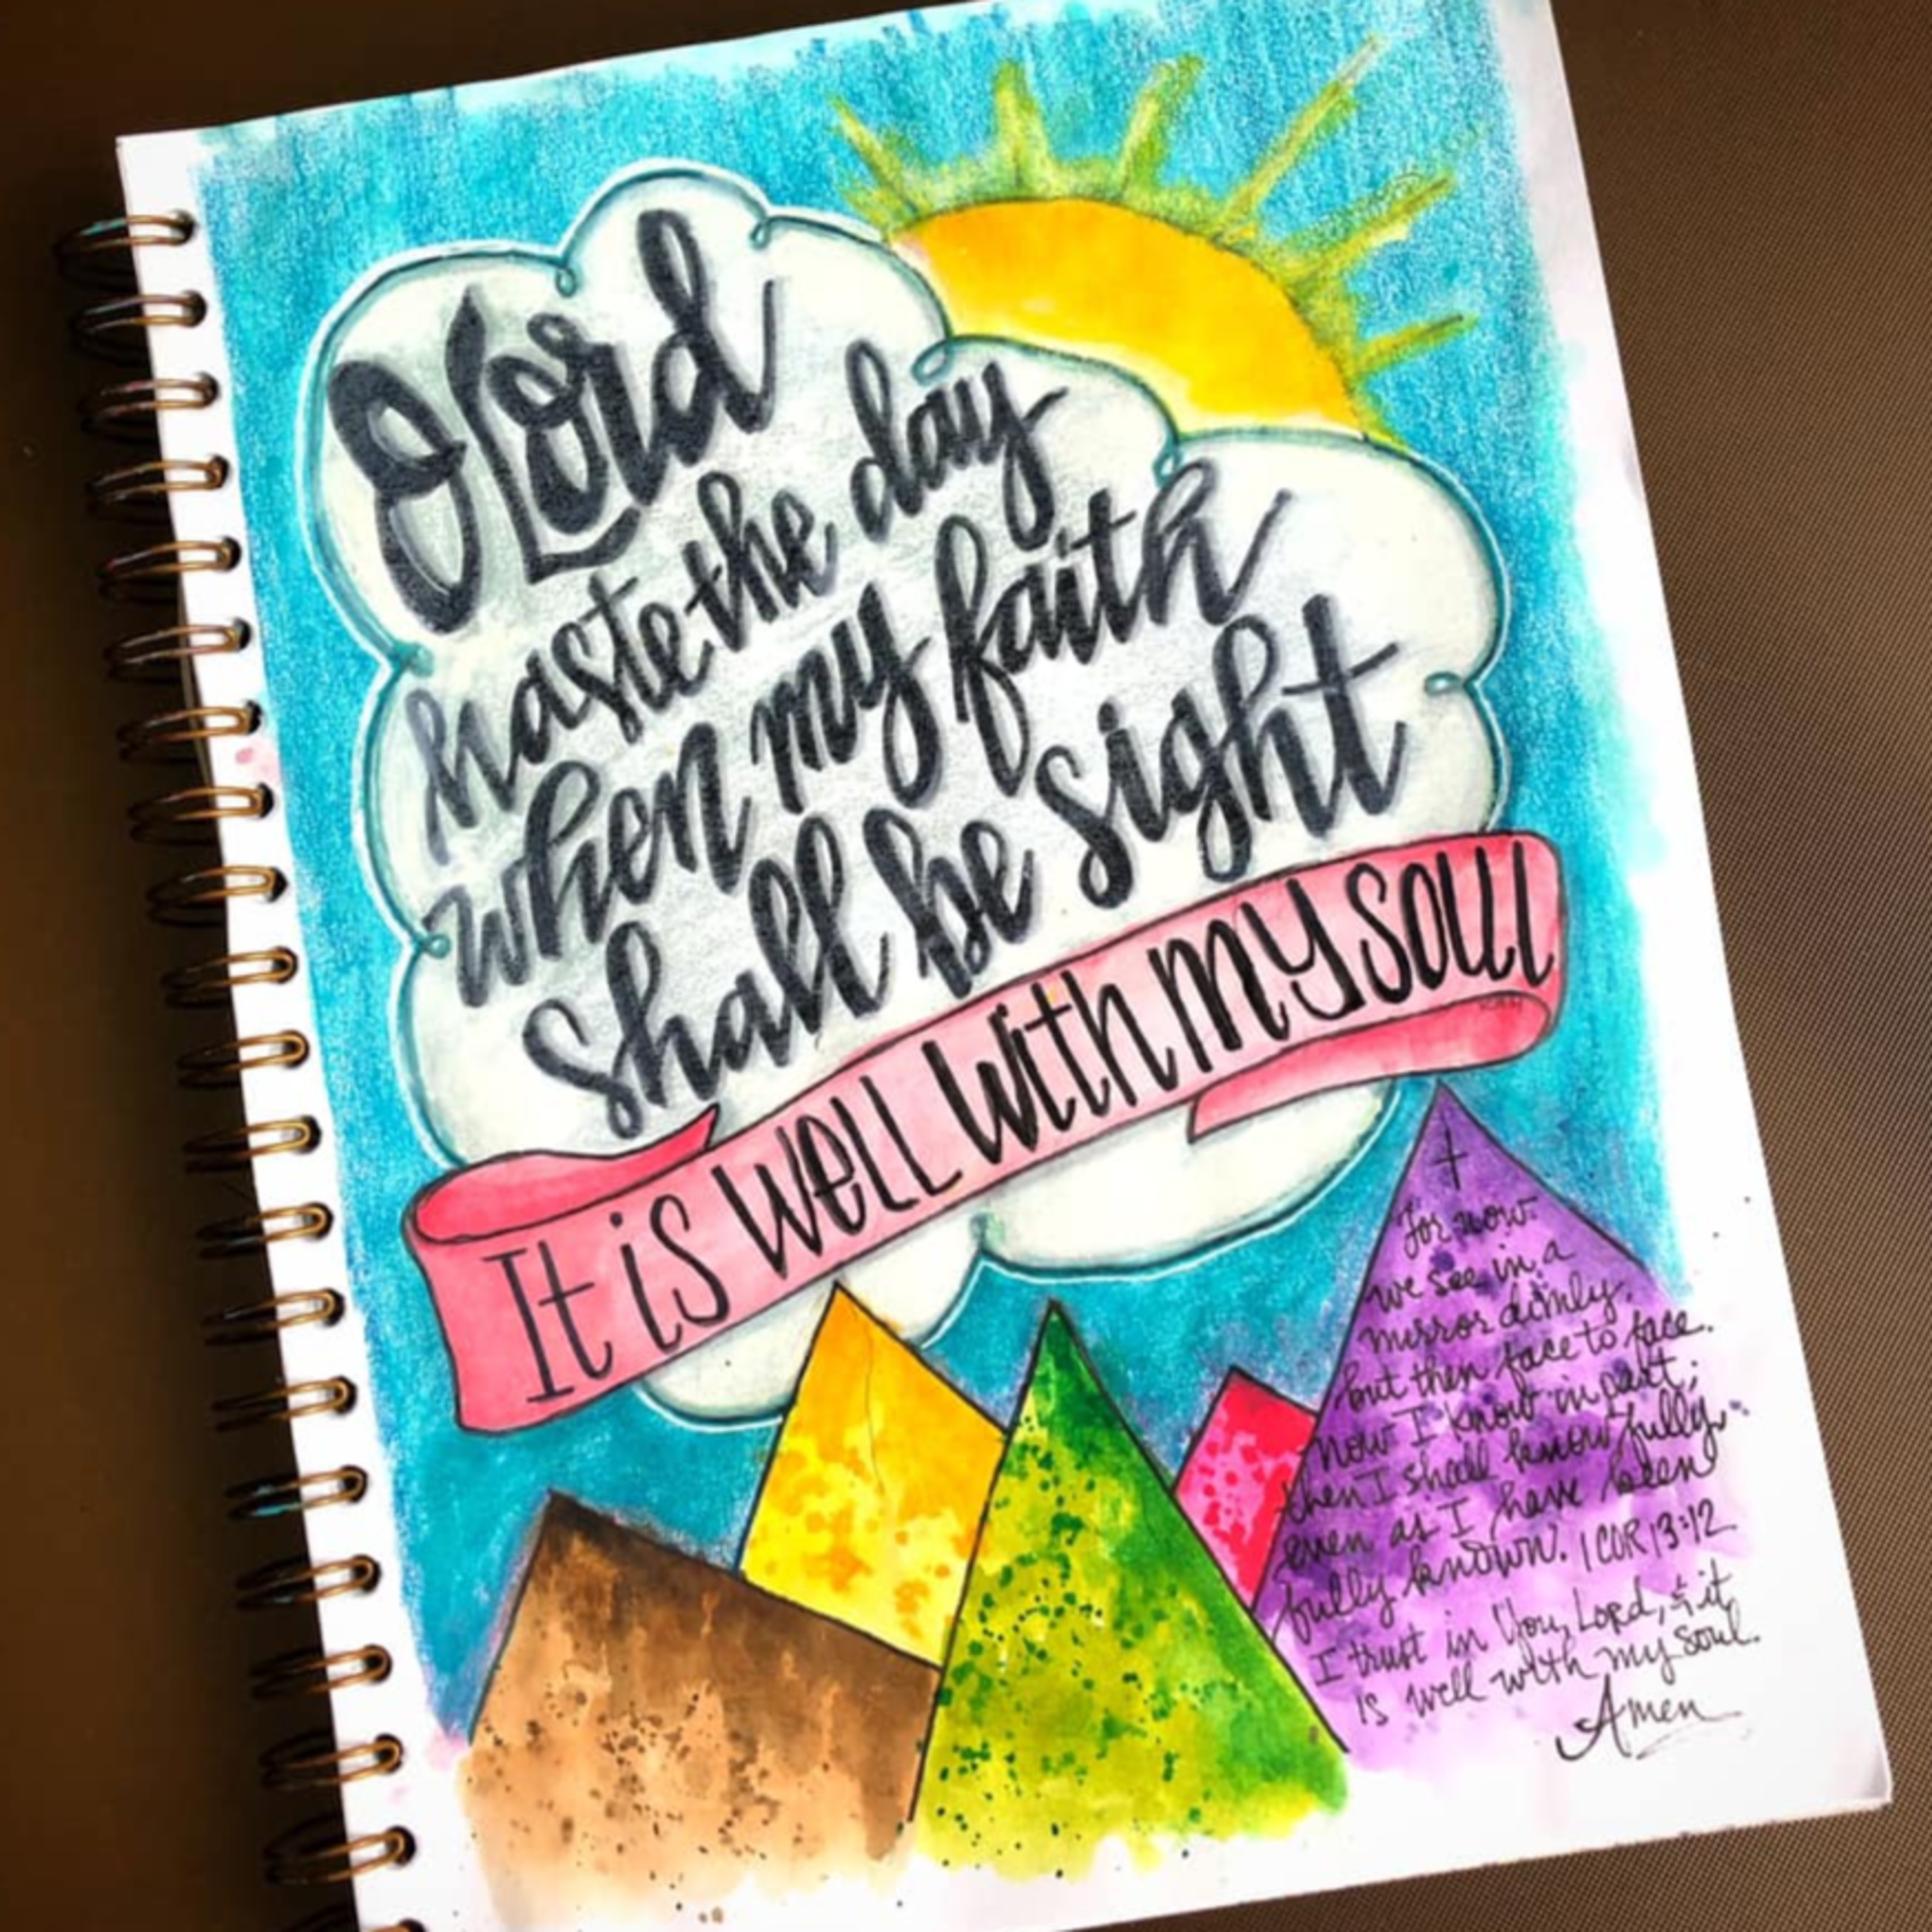 O Lord
haste the day
when my faith
shall be sight
It is well with my soul
For now
we see in a
mirror dimly,
but then face to face.
Now I know in part;
then I shall know fully
even as I have been
fully known. 1 COR 13:12
I trust in You, Lord, & it
is well with my soul.
Amen